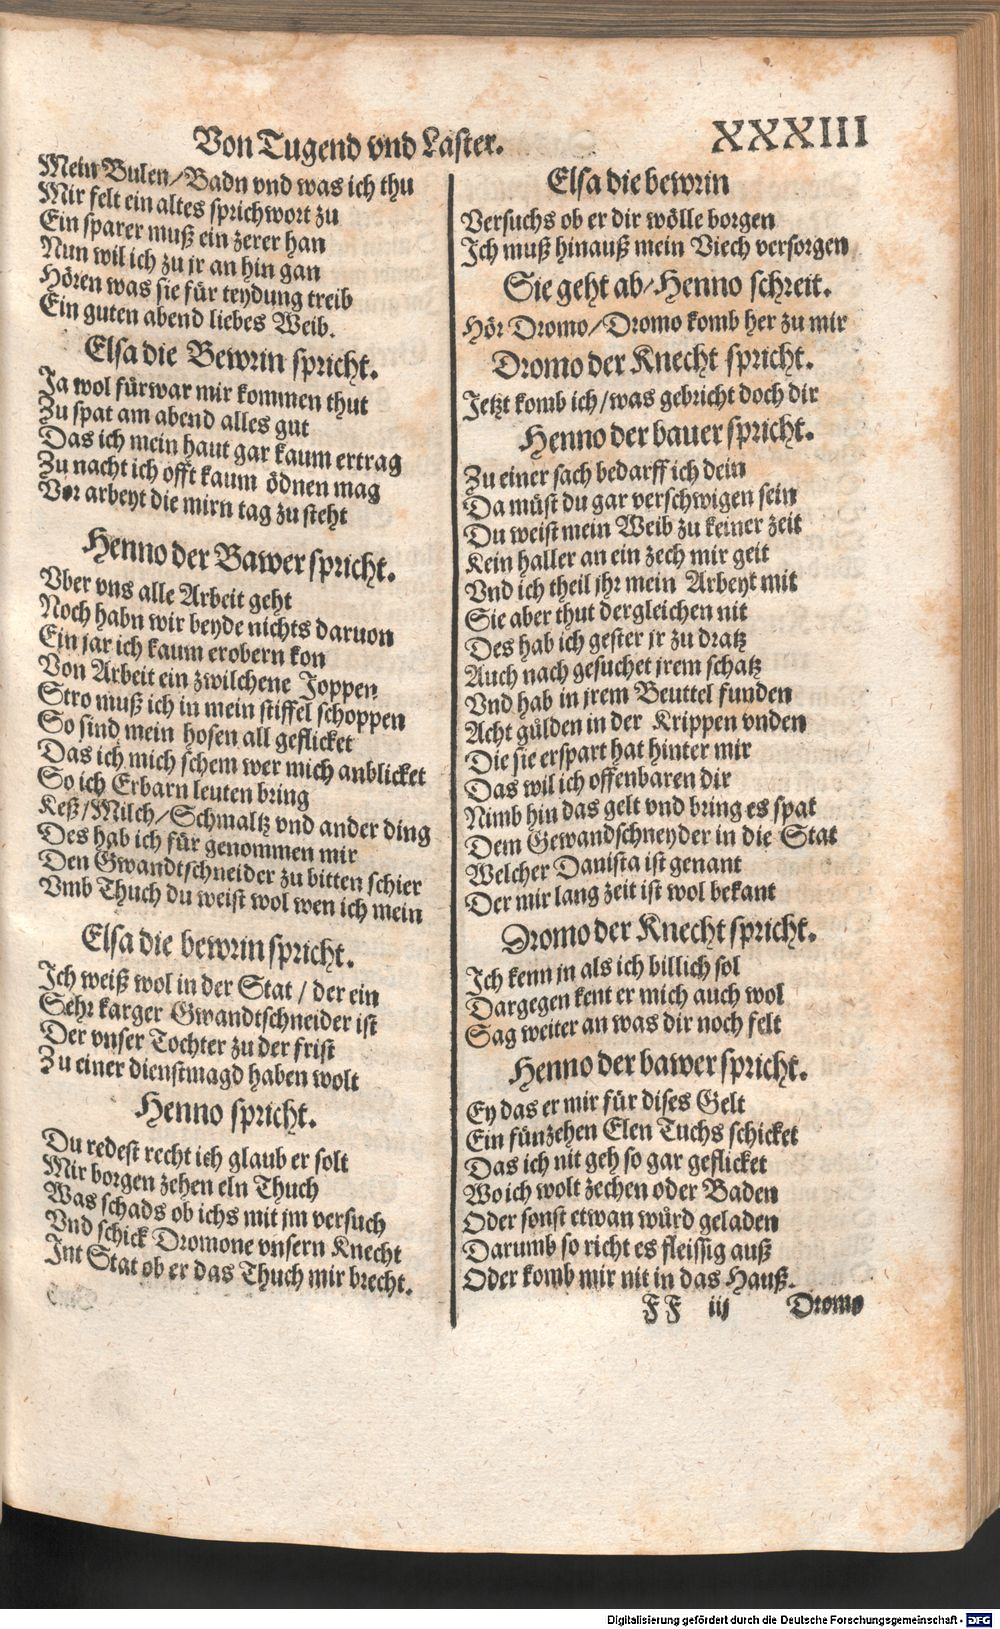 Von Tugend vnd Laster.
XXXIII
Mein Bulen/Badn vnd was ich thu
Mir felt ein altes sprichwort zu
Ein sparer muß ein zerer han
Nun wil ich zu jr an hin gan
Hören was sie für teydung treib
Ein guten abend liebes Weib.
Elsa die Bewrin spricht.
Ja wol fürwar mir kommen thut
Zu spat am abend alles gut
Das ich mein haut gar kaum ertrag
Zu nacht ich offt kaum ödnen mag
Vor arbeyt die mirn tag zu steht
Henno der Bawer spricht.
Vber vns alle Arbeit geht
Noch habn wir beyde nichts daruon
Ein jar ich kaum erobern kon
Von Arbeit ein zwilchene Joppen
Stro muß ich in mein stiffel schoppen
So sind mein hosen all geflicket
Das ich mich schem wer mich anblicket
So ich Erbarn leuten bring
Keß/Milch/Schmaltz vnd ander ding
Des hab ich für genommen mir
Den Gwandtschneider zu bitten schier
Vmb Thuch du weist wol wen ich mein
Elsa die bewrin spricht.
Ich weiß wol in der Stat / der ein
Sehr karger Gwandtschneider ist
Der vnser Tochter zu der frist
Zu einer dienstmagd haben wolt
Henno spricht.
Du redest recht ich glaub er solt
Mir borgen zehen eln Thuch
Was schads ob ichs mit jm versuch
Vnd schick Dromone vnsern Knecht
Int Stat ob er das Thuch mir brecht.
Elsa die bewrin
Versuchs ob er dir wölle borgen
Ich muß hinauß mein Viech versorgen
Sie geht ab/Henno schreit.
Hör Dromo/Dromo komb her zu mir
Dromo der Knecht spricht.
Jetzt komb ich/was gebricht doch dir
Henno der bauer spricht.
Zu einer sach bedarff ich dein
Da müst du gar verschwigen sein
Du weist mein Weib zu keiner zeit
Kein haller an ein zech mir geit
Vnd ich theil jhr mein Arbeyt mit
Sie aber thut dergleichen nit
Des hab ich gester jr zu dratz
Auch nach gesuchet jrem schatz
Vnd hab in jrem Beuttel funden
Acht gülden in der Krippen vnden
Die sie erspart hat hinter mir
Das wil ich offenbaren dir
Nimb hin das gelt vnd bring es spat
Dem Gewandschneyder in die Stat
Welcher Danista ist genant
Der mir lang zeit ist wol bekant
Dromo der Knecht spricht.
Ich kenn jn als ich billich sol
Dargegen kent er mich auch wol
Sag weiter an was dir noch felt
Henno der bawer spricht.
Ey das er mir für dises Gelt
Ein fünzehen Elen Tuchs schicket
Das ich nit geh so gar geflicket
Wo ich wolt zechen oder Baden
Oder sonst etwan würd geladen
Darumb so richt es fleissig auß
Oder komb mir nit in das Hauß.
FF iij Dromo
Digitalisierung gefördert durch die Deutsche Forschungsgemeinschaft - DFG